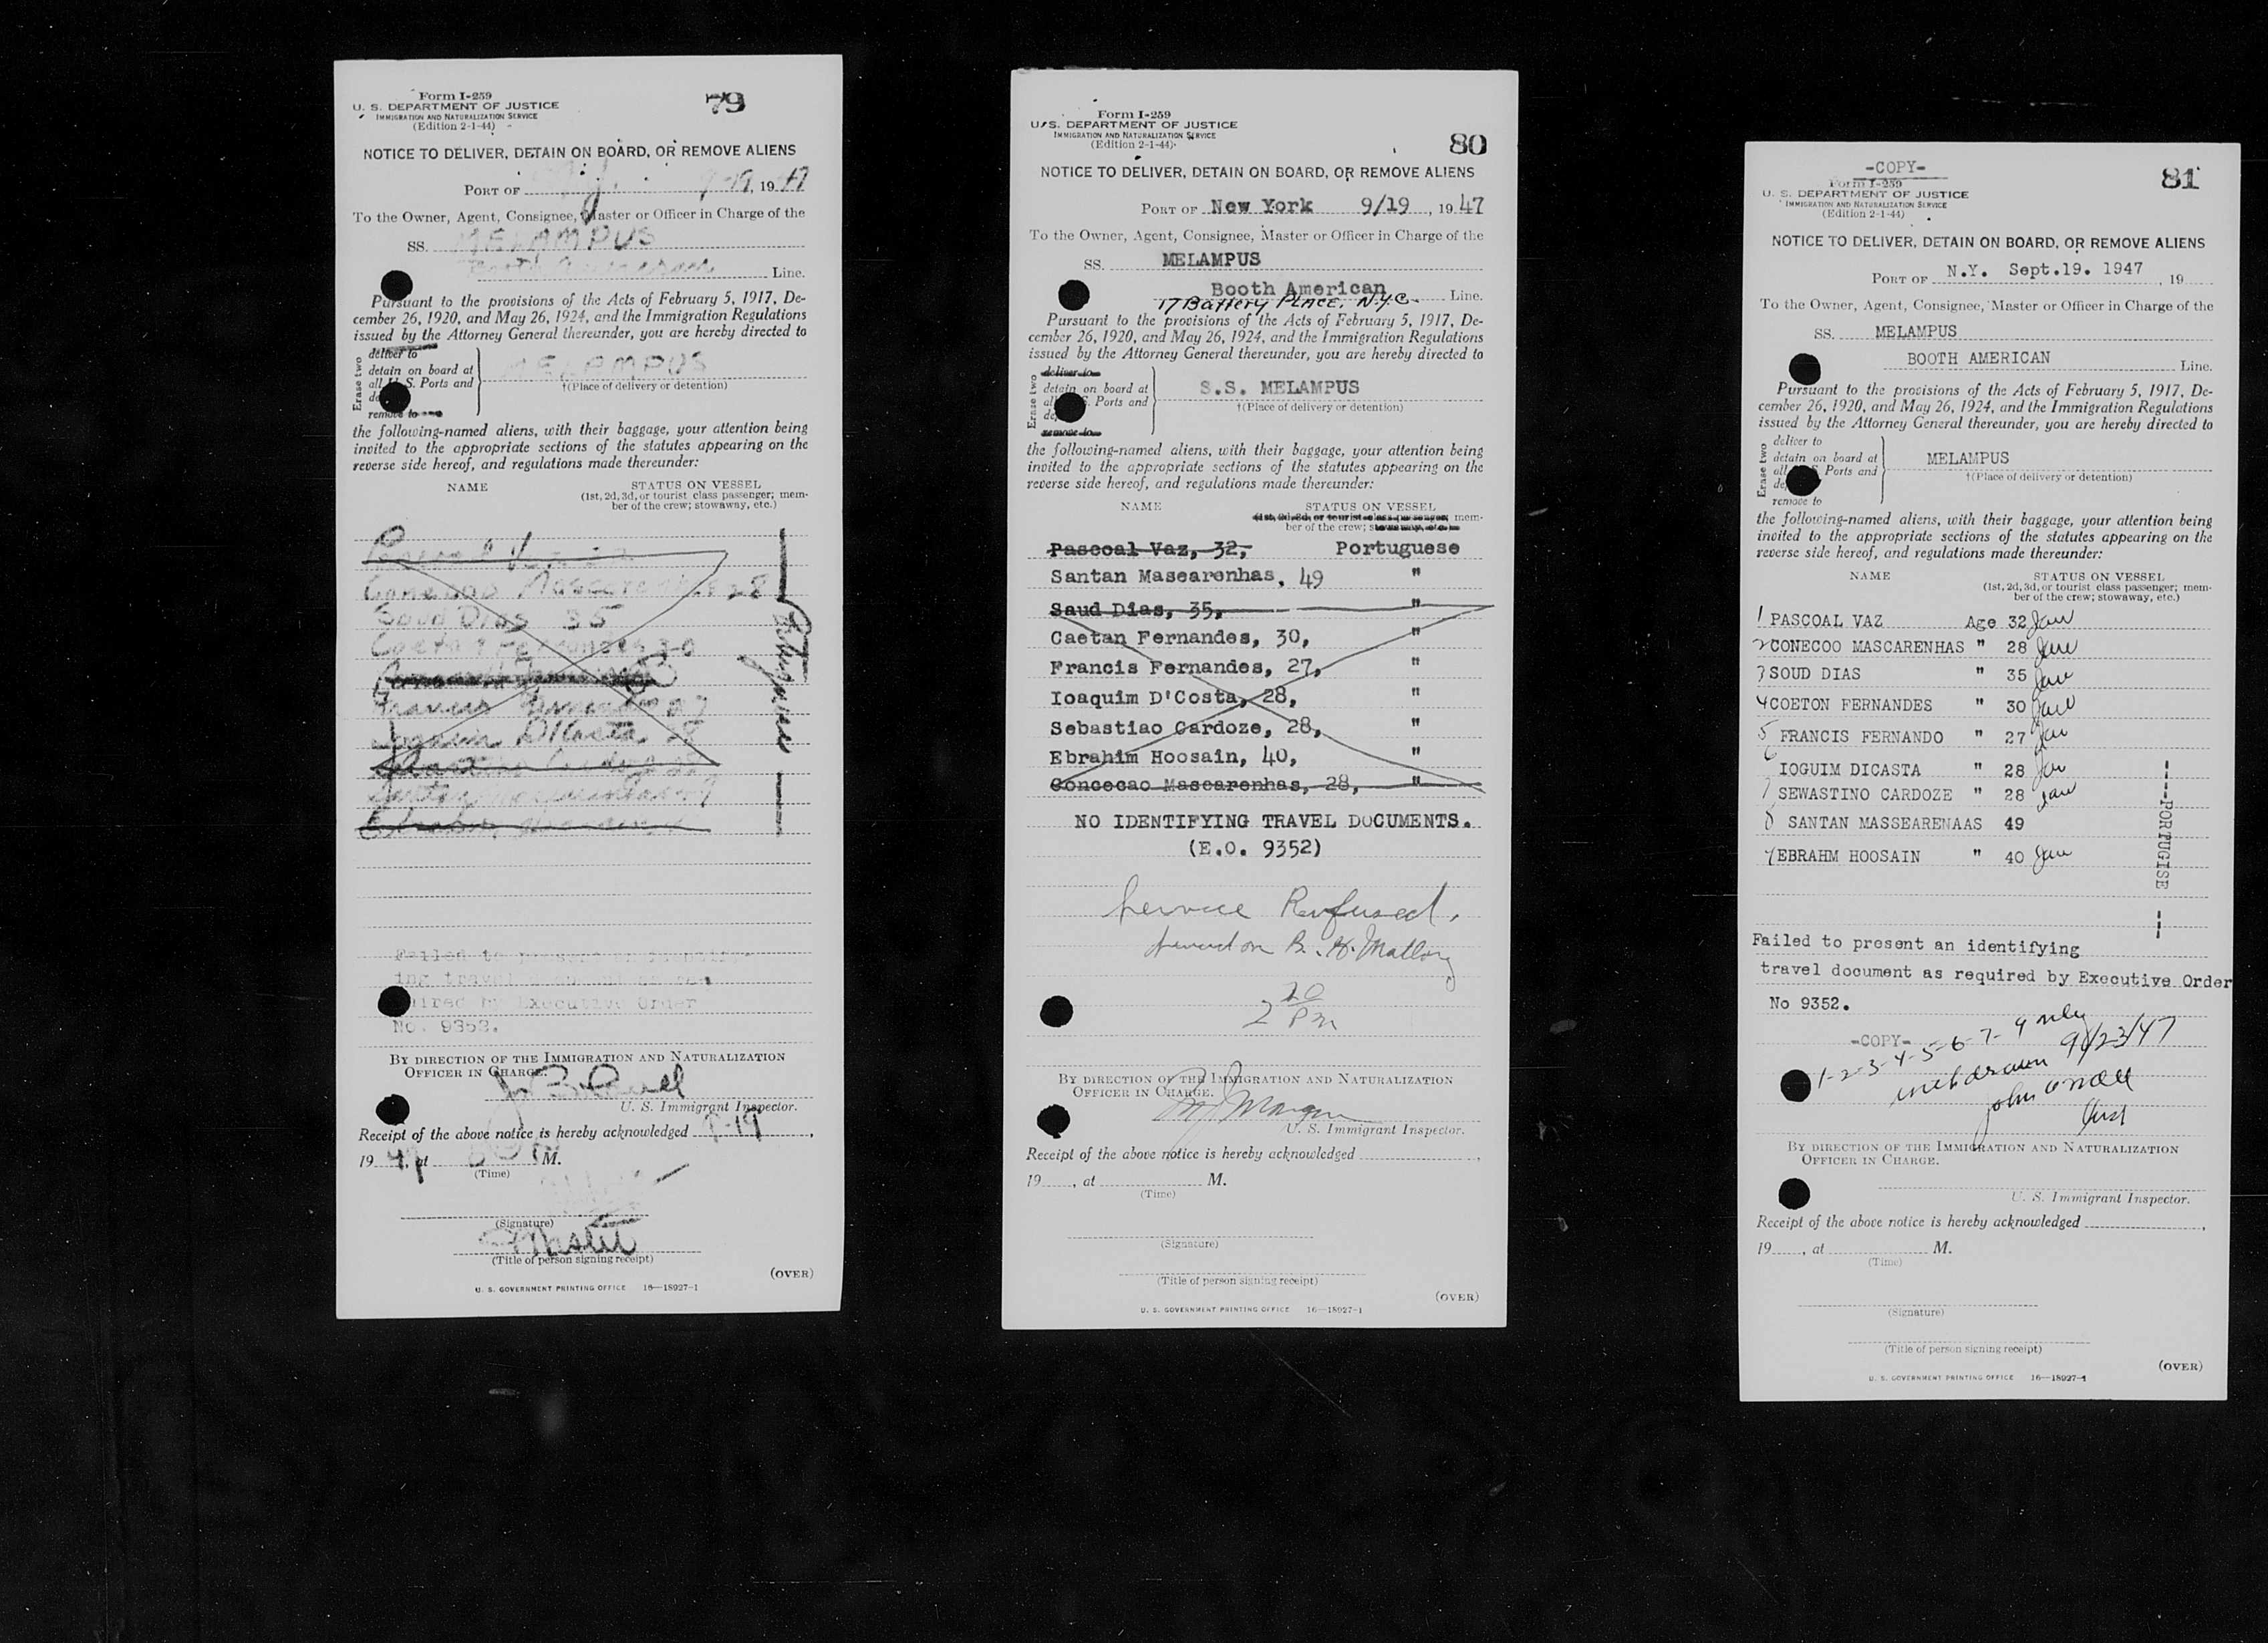 Form I-259
79
U. S. DEPARTMENT OF JUSTICE
IMMIGRATION AND NATURALIZATION SERVICE
(Edition 2-1-44)
NOTICE TO DELIVER, DETAIN ON BOARD, OR REMOVE ALIENS
PORT OF N.Y. 9-19, 1947
To the Owner, Agent, Consignee, Master or Officer in Charge of the
SS. MELAMPUS
Booth American Line.
Pursuant to the provisions of the Acts of February 5, 1917, De-
cember 26, 1920, and May 26, 1924, and the Immigration Regulations
issued by the Attorney General thereunder, you are hereby directed to
Erase two
deliver to
detain on board at
all U.S. Ports and
remove to
MELAMPUS
†(Place of delivery or detention)
the following-named aliens, with their baggage, your attention being
invited to the appropriate sections of the statutes appearing on the
reverse side hereof, and regulations made thereunder:
NAME STATUS ON VESSEL
(1st, 2d, 3d, or tourist class passenger; mem-
ber of the crew; stowaway, etc.)
Conecoo Mascarenhas 28
Soud Dias 35
Coeton Fernandes 30
Francis Fernando 27
Ioguim DICasta 28
Failed to present an identify-
ing travel document as req
uired by Executive Order
No. 9352.
BY DIRECTION OF THE IMMIGRATION AND NATURALIZATION
OFFICER IN CHARGE.
U. S. Immigrant Inspector.
Receipt of the above notice is hereby acknowledged 9-19,
1947, at M.
(Time)
(Signature)
Master
(Title of person signing receipt)
(OVER)
U. S. GOVERNMENT PRINTING OFFICE 16—18927-1
Form I-259
U. S. DEPARTMENT OF JUSTICE
IMMIGRATION AND NATURALIZATION SERVICE
(Edition 2-1-44)
80
NOTICE TO DELIVER, DETAIN ON BOARD, OR REMOVE ALIENS
PORT OF New York 9/19, 1947
To the Owner, Agent, Consignee, Master or Officer in Charge of the
SS. MELAMPUS
Booth American Line.
17 Battery Place, N.Y.C.
Pursuant to the provisions of the Acts of February 5, 1917, De-
cember 26, 1920, and May 26, 1924, and the Immigration Regulations
issued by the Attorney General thereunder, you are hereby directed to
Erase two
deliver to
detain on board at
Ports and
remove to
S.S. MELAMPUS
†(Place of delivery or detention)
the following-named aliens, with their baggage, your attention being
invited to the appropriate sections of the statutes appearing on the
reverse side hereof, and regulations made thereunder:
NAME STATUS ON VESSEL
(1st, 2d, 3d, or tourist class passenger; mem-
ber of the crew; stowaway, etc.)
Pascoal Vaz, 32, Portuguese
Santan Masearenhas, 49 "
Saud Dias, 35, "
Caetan Fernandes, 30, "
Francis Fernandes, 27, "
Ioaquim D'Costa, 28, "
Sebastiao Cardoze, 28, "
Ebrahim Hoosain, 40, "
Concecao Mascarenhas, 28, "
NO IDENTIFYING TRAVEL DOCUMENTS.
(E.O. 9352)
Service Refused.
Served on B. H. Mallory
2 20 PM
BY DIRECTION OF THE IMMIGRATION AND NATURALIZATION
OFFICER IN CHARGE.
U. S. Immigrant Inspector.
Receipt of the above notice is hereby acknowledged ,
19 , at M.
(Time)
(Signature)
(Title of person signing receipt)
(OVER)
U. S. GOVERNMENT PRINTING OFFICE 16—18927-1
-COPY-
81
Form I-259
U. S. DEPARTMENT OF JUSTICE
IMMIGRATION AND NATURALIZATION SERVICE
(Edition 2-1-44)
NOTICE TO DELIVER, DETAIN ON BOARD, OR REMOVE ALIENS
PORT OF N.Y. Sept.19. 1947 , 19
To the Owner, Agent, Consignee, Master or Officer in Charge of the
SS. MELAMPUS
BOOTH AMERICAN Line.
Pursuant to the provisions of the Acts of February 5, 1917, De-
cember 26, 1920, and May 26, 1924, and the Immigration Regulations
issued by the Attorney General thereunder, you are hereby directed to
Erase two
deliver to
detain on board at
all Ports and
remove to
MELAMPUS
†(Place of delivery or detention)
the following-named aliens, with their baggage, your attention being
invited to the appropriate sections of the statutes appearing on the
reverse side hereof, and regulations made thereunder:
NAME STATUS ON VESSEL
(1st, 2d, 3d, or tourist class passenger; mem-
ber of the crew; stowaway, etc.)
1 PASCOAL VAZ Age 32
2 CONECOO MASCARENHAS " 28
3 SOUD DIAS " 35
4 COETON FERNANDES " 30
5 FRANCIS FERNANDO " 27
6 IOGUIM DICASTA " 28
7 SEWASTINO CARDOZE " 28
8 SANTAN MASSEARENAAS 49
9 EBRAHM HOOSAIN " 40
----PORTUGISE --
Failed to present an identifying
travel document as required by Executive Order
No 9352.
-COPY-
1-2-3-4-5-6-7-9 only
withdrawn 9/23/47
BY DIRECTION OF THE IMMIGRATION AND NATURALIZATION
OFFICER IN CHARGE.
U. S. Immigrant Inspector.
Receipt of the above notice is hereby acknowledged ,
19 , at M.
(Time)
(Signature)
(Title of person signing receipt)
(OVER)
U. S. GOVERNMENT PRINTING OFFICE 16—18927-1